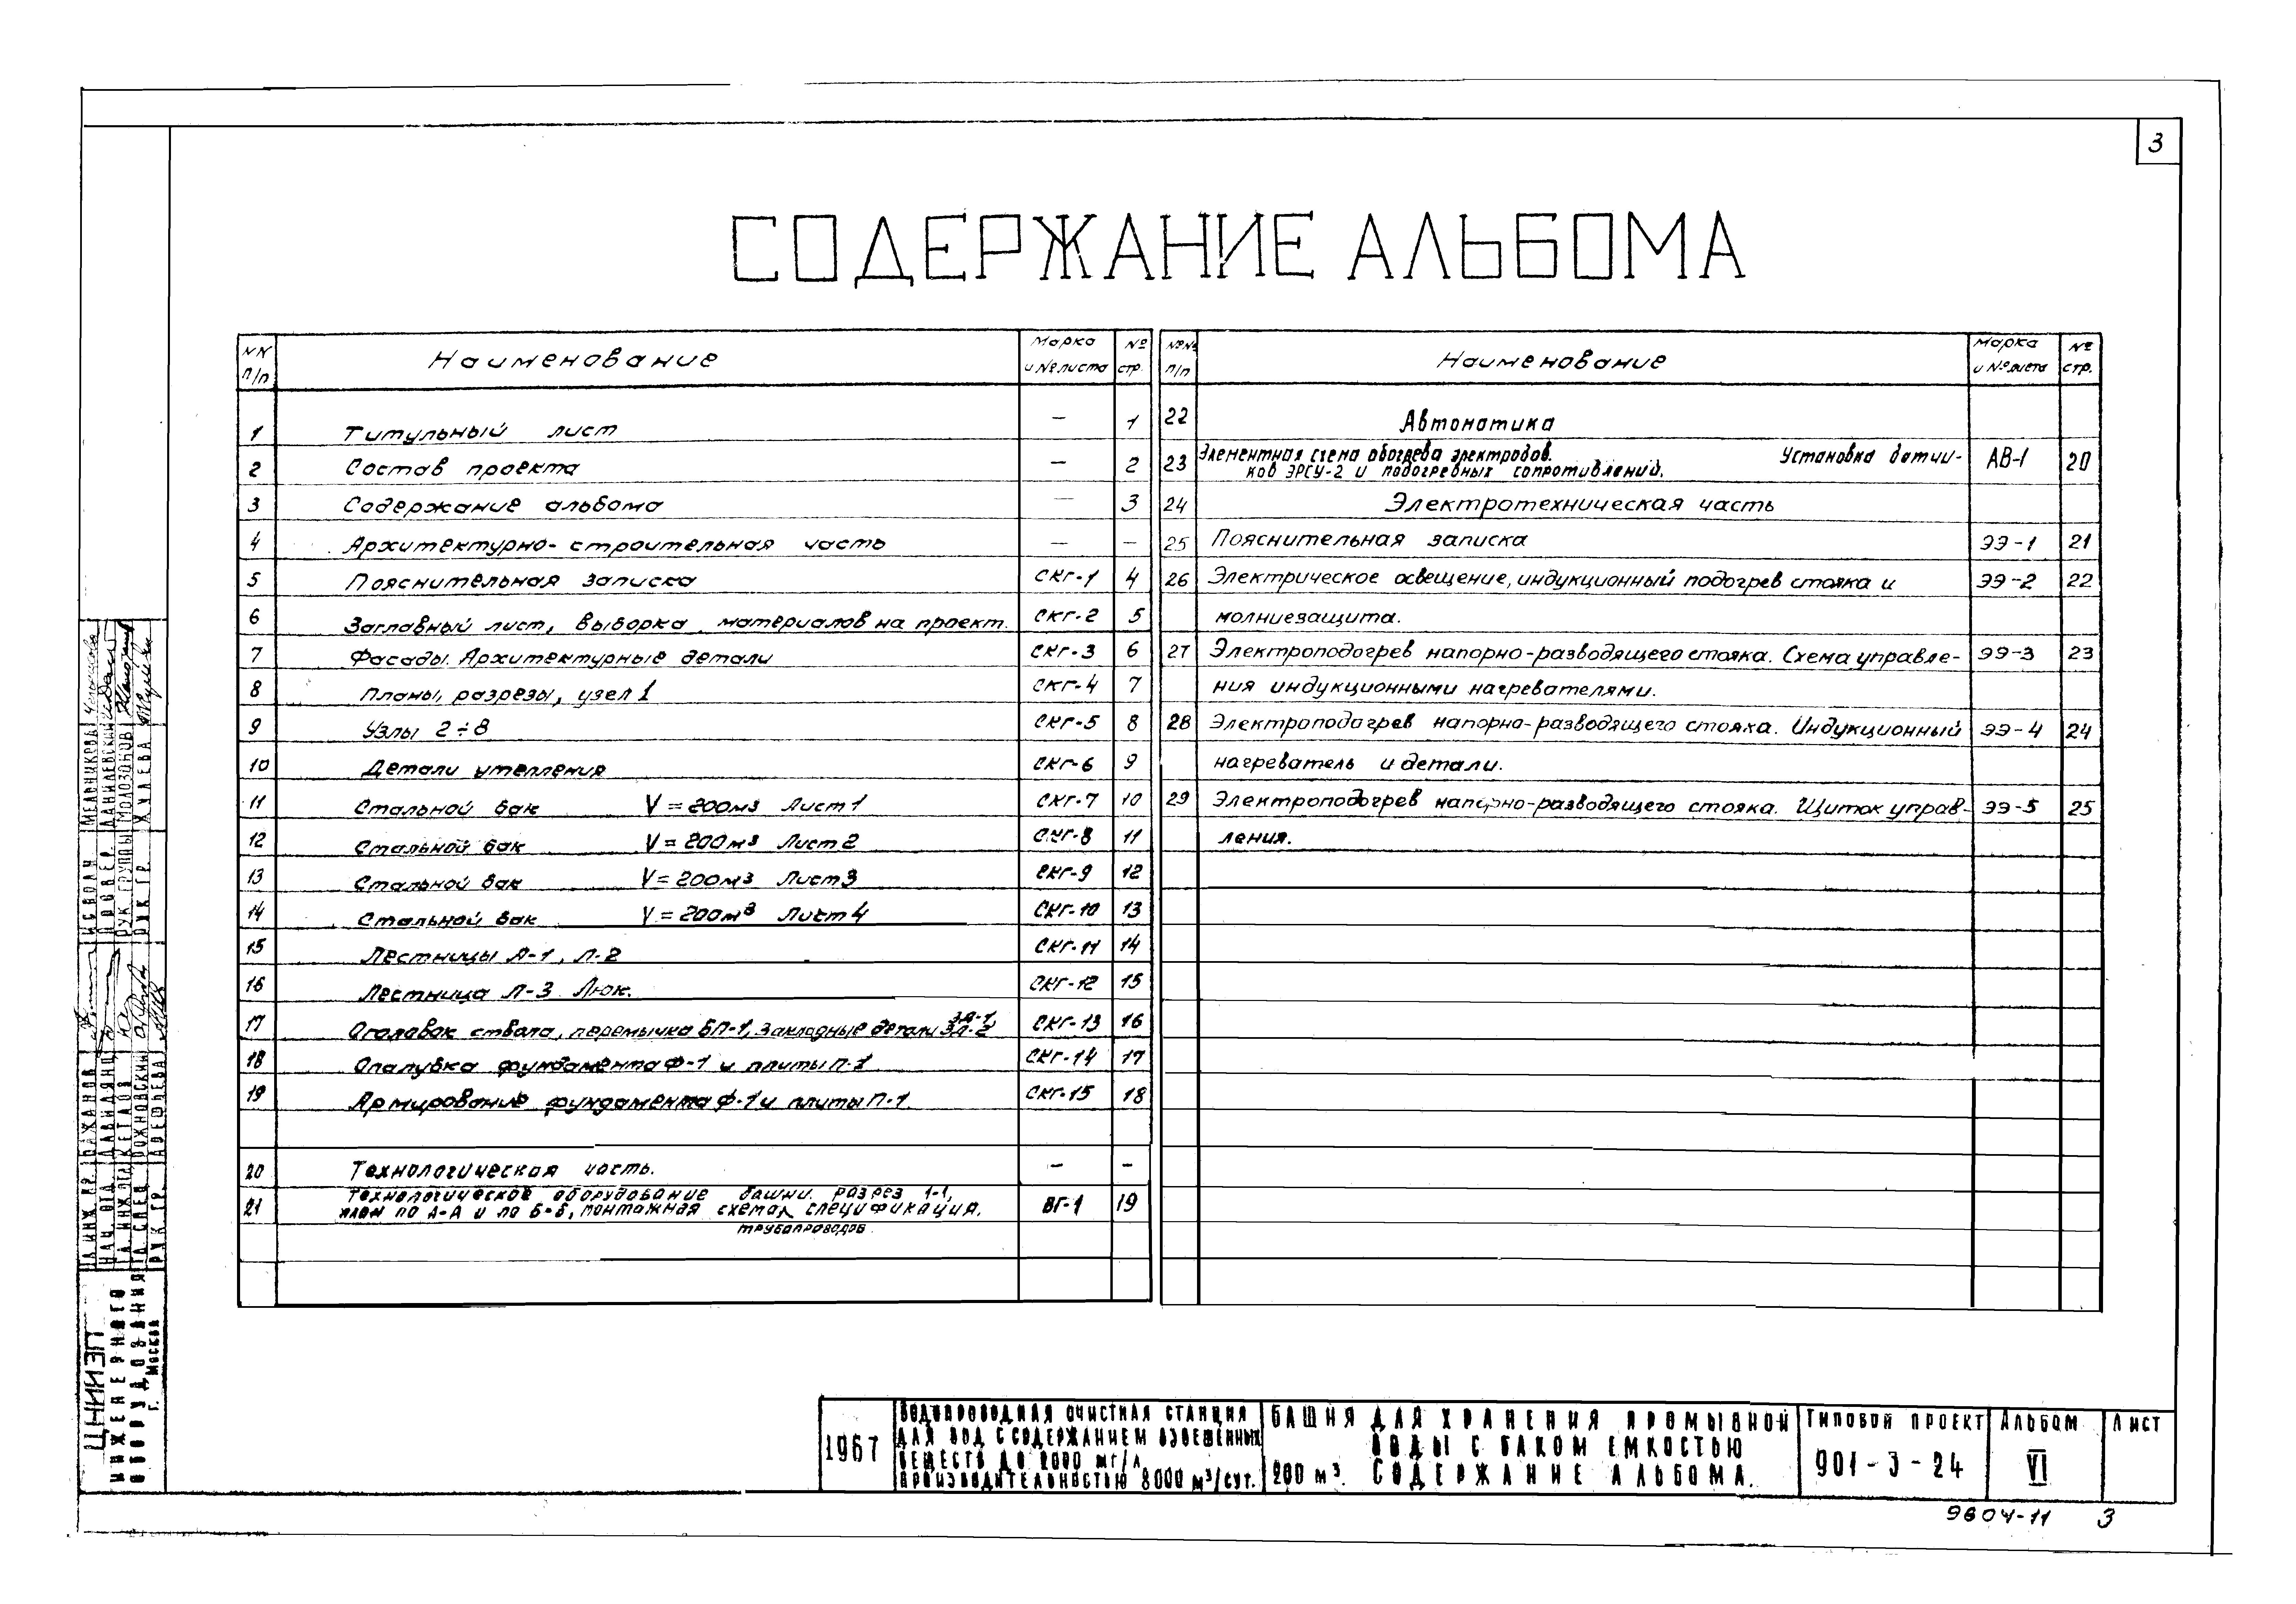 3
СОДЕРЖАНИЕ АЛЬБОМА
NN п/п Наименование Марка и № листа № стр.
1 Титульный лист — 1
2 Состав проекта — 2
3 Содержание альбома — 3
4 Архитектурно-строительная часть — —
5 Пояснительная записка СКГ-1 4
6 Заглавный лист, выборка материалов на проект. СКГ-2 5
7 Фасады. Архитектурные детали СКГ-3 6
8 Планы, разрезы, узел 1 СКГ-4 7
9 Узлы 2÷8 СКГ-5 8
10 Детали утепления СКГ-6 9
11 Стальной бак V=200м3 Лист 1 СКГ-7 10
12 Стальной бак V=200м3 Лист 2 СКГ-8 11
13 Стальной бак V=200м3 Лист 3 СКГ-9 12
14 Стальной бак V=200м3 Лист 4 СКГ-10 13
15 Лестницы Л-1, Л-2 СКГ-11 14
16 Лестница Л-3 Люк. СКГ-12 15
17 Оголовок ствола, перемычка БП-1, Закладные детали ЗД-1, ЗД-2 СКГ-13 16
18 Опалубка фундамента Ф-1 и плиты П-1 СКГ-14 17
19 Армирование фундамента Ф-1 и плиты П-1. СКГ-15 18
20 Технологическая часть. — —
21 Технологическое оборудование башни. разрез 1-1,
план по А-А и по Б-Б, монтажная схема, спецификация. ВГ-1 19
трубопроводов.
№№ п/п Наименование Марка и № листа № стр.
22 Автоматика
23 Элементная схема обогрева электродов. Установка датчи-
ков ЭРСУ-2 и подогревных сопротивлений. АВ-1 20
24 Электротехническая часть
25 Пояснительная записка ЭЭ-1 21
26 Электрическое освещение, индукционный подогрев стояка и ЭЭ-2 22
молниезащита.
27 Электроподогрев напорно-разводящего стояка. Схема управле- ЭЭ-3 23
ния индукционными нагревателями.
28 Электроподогрев напорно-разводящего стояка. Индукционный ЭЭ-4 24
нагреватель и детали.
29 Электроподогрев напорно-разводящего стояка. Щиток управ- ЭЭ-5 25
ления.
ЦНИИЭП
ИНЖЕНЕРНОГО
ОБОРУДОВАНИЯ
г. Москва
ГЛ.ИНЖ.ПР. БАЖАНОВ
НАЧ. ОТД. ДАВИДЯНЦ
ГЛ.ИНЖ.ОТД. КЕТАОВ
ГЛ.СПЕЦ.
РУК. ГР. АРЕФЬЕВА
ИСПОЛН. МЕЛЬНИКОВА
ПРОВЕР. ДАНИЛЕВСКИЙ
РУК. ГРУППЫ МОЛОЗОНОВ
РУК. ГР.
1967
ВОДОПРОВОДНАЯ ОЧИСТНАЯ СТАНЦИЯ
ДЛЯ ВОД С СОДЕРЖАНИЕМ ВЗВЕШЕННЫХ
ВЕЩЕСТВ ДО 2000 мг/л
ПРОИЗВОДИТЕЛЬНОСТЬЮ 8000 м³/сут.
БАШНЯ ДЛЯ ХРАНЕНИЯ ПРОМЫВНОЙ
ВОДЫ С БАКОМ ЕМКОСТЬЮ
200 м³. СОДЕРЖАНИЕ АЛЬБОМА.
ТИПОВОЙ ПРОЕКТ
901-3-24
АЛЬБОМ
VI
ЛИСТ
9604-11 3